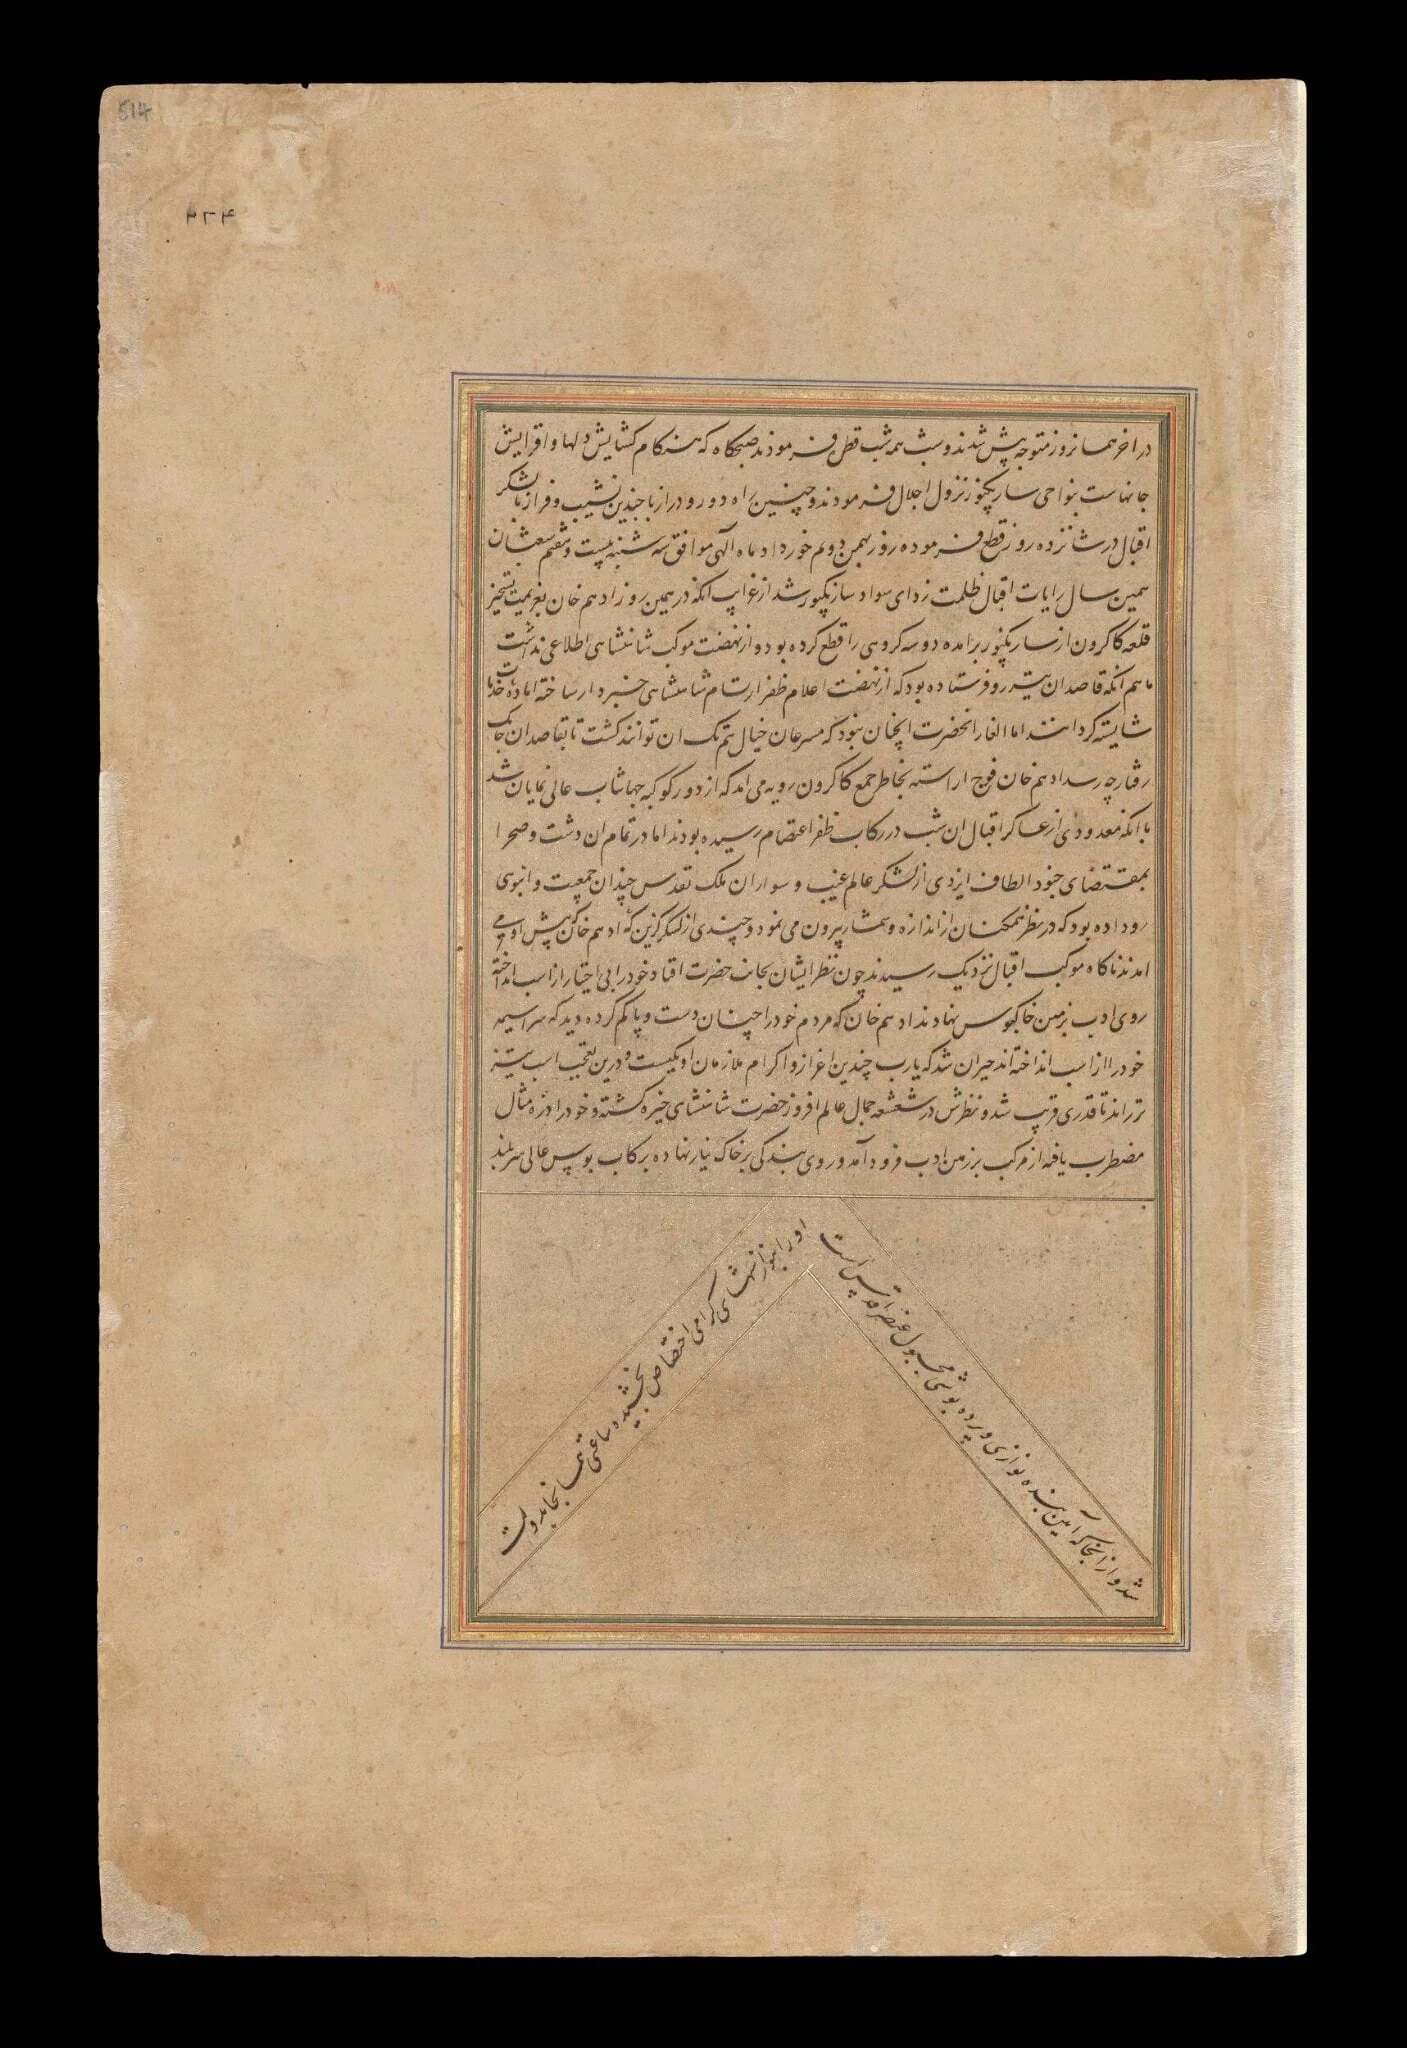 514
۲۲۴
در اخر همانروز متوجه پیش شدند و شب همه شب قطع فرمودند صبحگاه که هنگام گشایش دلها و افزایش
جانهاست بنواحی سارنگپور نزول اجلال فرمودند و چنین راه دور و دراز با چندین نشیب و فراز با لشکر
اقبال در شانزده روز قطع فرموده روز بهمن دوم خورداد ماه الهی موافق سه شنبه بیست و هفتم شعبان
همین سال رایات اقبال ظلمت زدای سواد سارنگپور شد از غرایب انکه در همین روز ادهم خان بعزیمت تسخیر
قلعه کاکرون از سارنگپور برامده دو سه کروهی را قطع کرده بود و از نهضت موکب شاهنشاهی اطلاعی نداشت
ماهم انکه قاصدان تیز رو فرستاده بود که از نهضت اعلام ظفر ارتسام شاهنشاهی خبردار ساخته اماده خدمات
شایسته گردانند اما ایلغار انحضرت انچنان نبود که مسرعان خیال هم تک ان توانند گشت تا بقاصدان چابک
رفتار چه رسد ادهم خان فوج اراسته بخاطر جمع کاکرون رویه می امد که از دور کوکبه جهانتاب عالی نمایان شد
با انکه معدودی از عساکر اقبال ان شب در رکاب ظفر اعتصام رسیده بودند اما در تمام ان دشت و صحرا
بمقتضای جنود الطاف ایزدی از لشکر عالم غیب و سواران ملک تقدس چندان جمعیت و انبوهی
روداده بود که در نظر همکنان از اندازه و شمار بیرون می نمود و چندی از لشکر گزین که ادهم خان که پیش او می
امدند ناگاه موکب اقبال نزدیک رسیدند چون نظر ایشان بجانب حضرت افتاد خود را بی اختیار از اسب انداخته
روی ادب بزمین خاکبوس نهادند ادهم خان که مردم خود را چنان دست و پا گم کرده دید که سراسیمه
خود را از اسب انداخته اند حیران شد که یارب چندین اعزاز و اکرام ملازمان او بکیست و درین تعجب اسب تیز
تر راند تا قدری قریب شد و نظرش در شعشعه جمال عالم افروز حضرت شاهنشاهی خیره گشته و خود را ذره مثال
مضطرب یافته از مرکب بر زمین ادب فرود آمد و روی بندگی بر خاک نیاز نهاده برکاب بوس عالی سربلند
شد و از انجا که آیین بنده نوازی و پرده پوشی مجبول عنصر اقدس است
او را بنوازشهای گرامی اختصاص بخشیده ساعتی همانجا بدولت